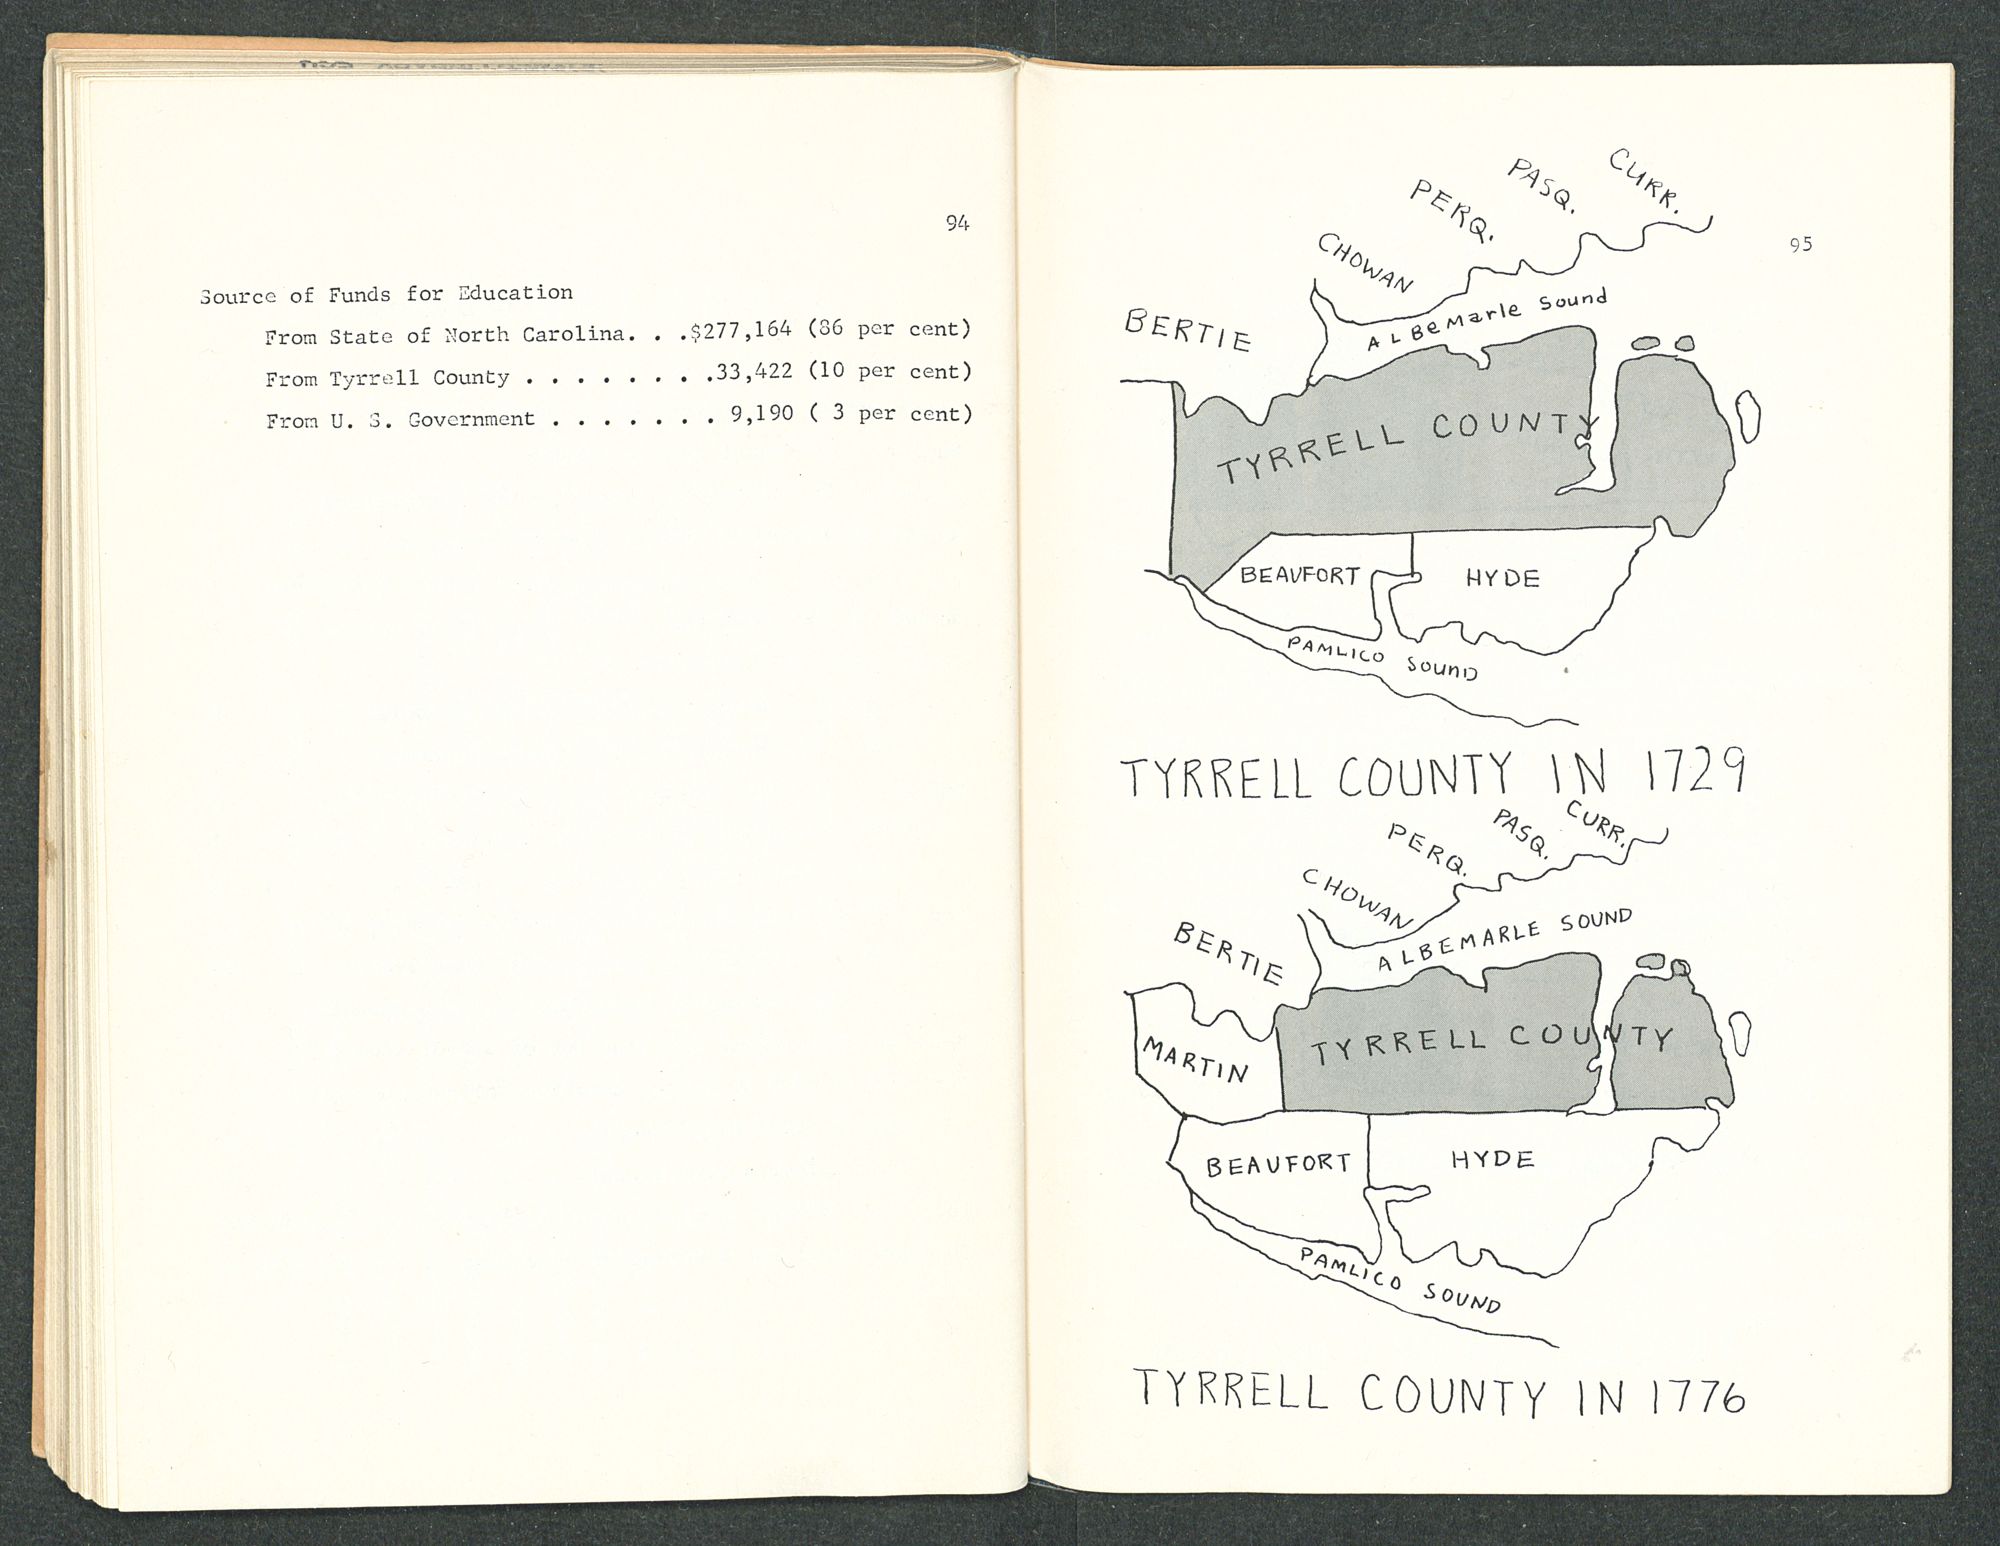 94
Source of Funds for Education
From State of North Carolina. . .$277,164 (86 per cent)
From Tyrrell County . . . . . . . .33,422 (10 per cent)
From U. S. Government . . . . . . . 9,190 ( 3 per cent)
95
CURR.
PASQ.
PERQ.
CHOWAN
BERTIE
ALBeMarle Sound
TYRRELL COUNTY
BEAUFORT
HYDE
PAMLICO SounD
TYRRELL COUNTY IN 1729
CURR.
PASQ.
PERQ.
CHOWAN
BERTIE
ALBEMARLE SOUND
TYRRELL COUNTY
MARTIN
BEAUFORT
HYDE
PAMLICO SOUND
TYRRELL COUNTY IN 1776